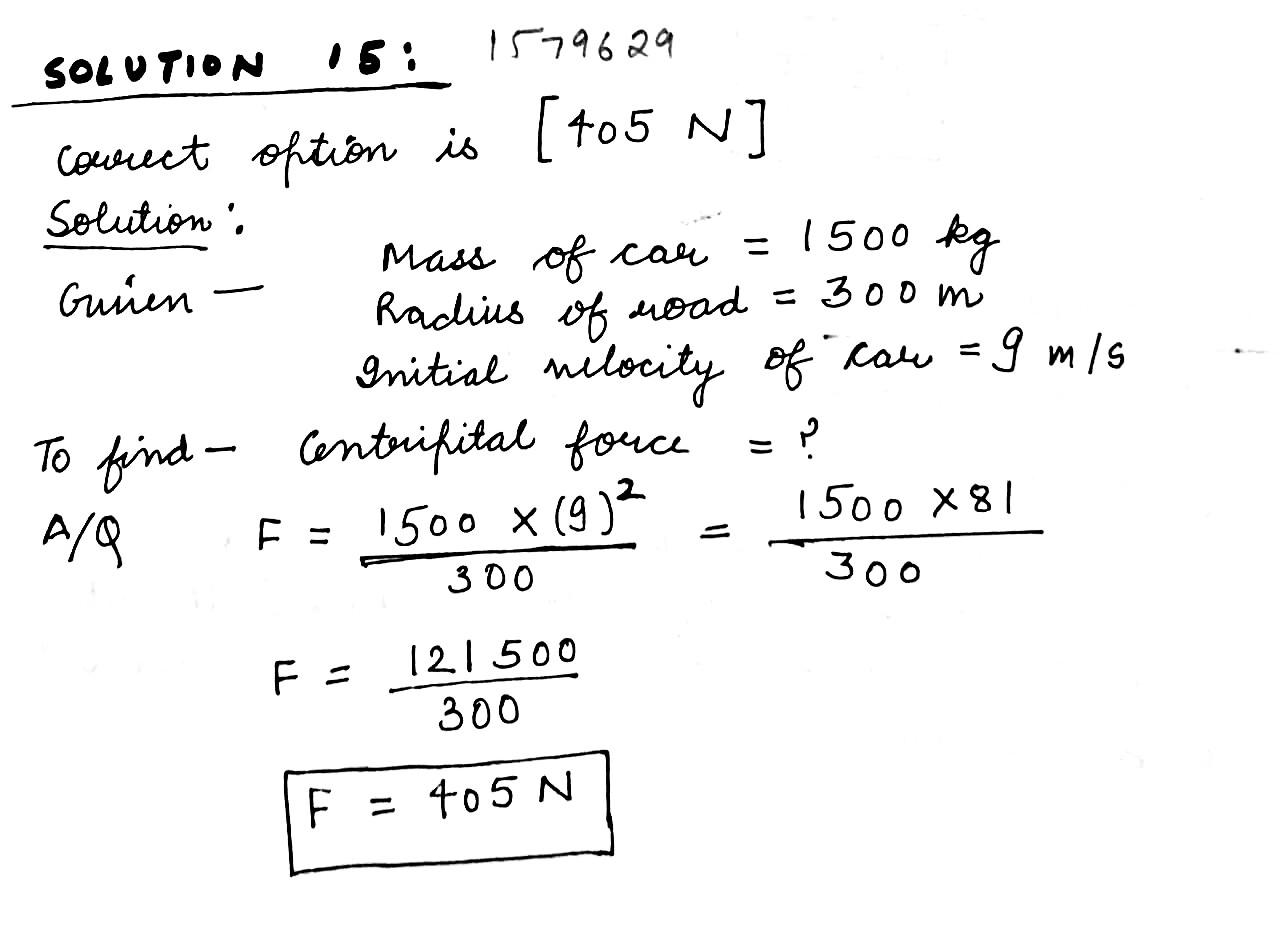 SOLUTION 15: 1579629
Correct option is [405 N]
Solution:
Given — Mass of car = 1500 kg
Radius of road = 300 m
Initial velocity of car = 9 m/s
To find — Centripital force = ?
A/Q F = 1500 × (9)² / 300 = 1500 × 81 / 300
F = 121500 / 300
F = 405 N